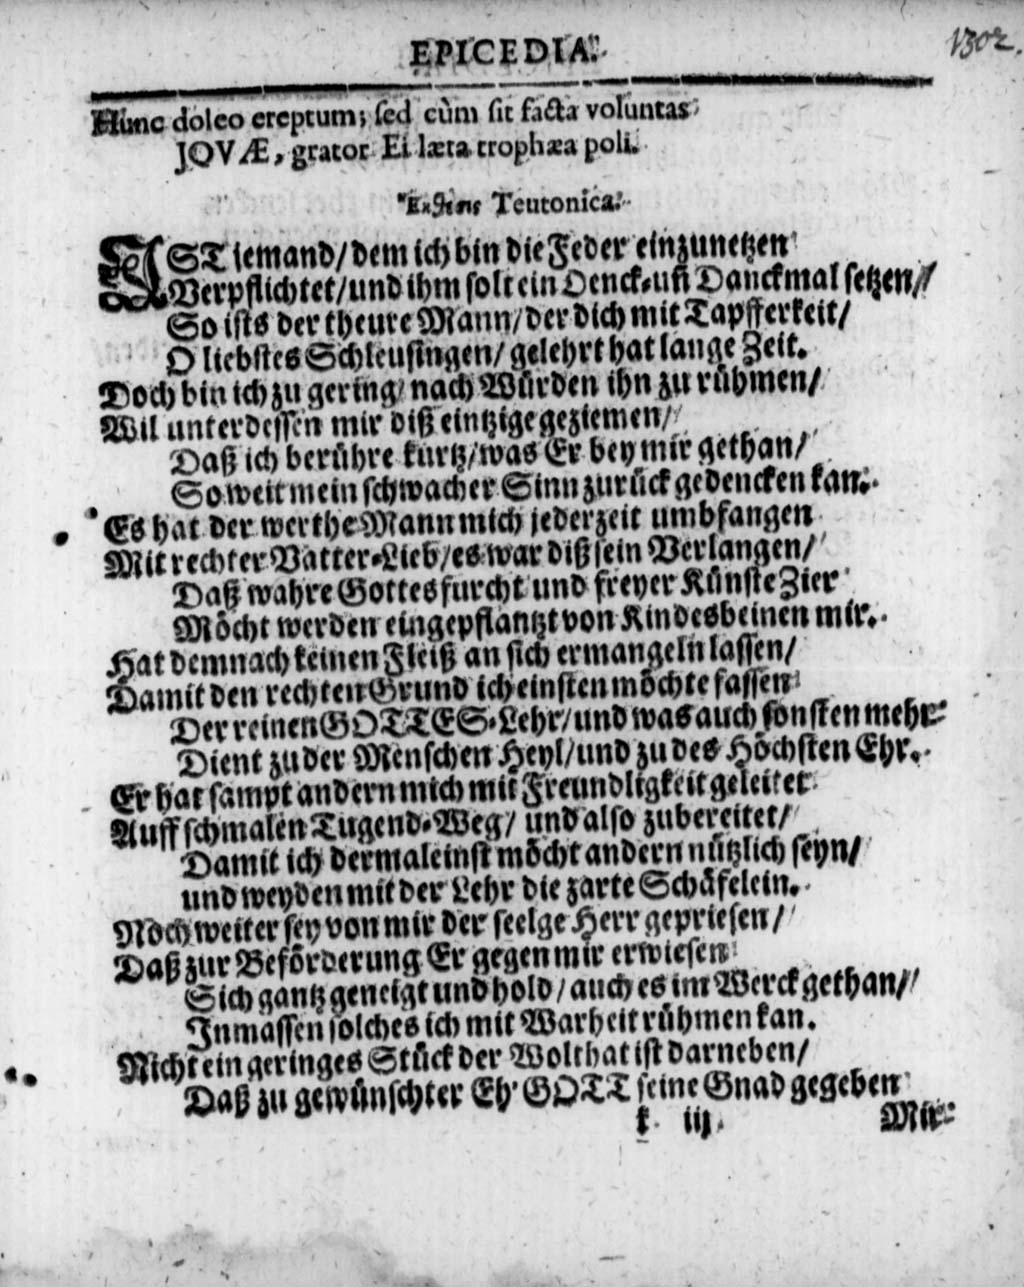 EPICEDIA.
1302.
Hunc doleo ereptum; sed cùm sit facta voluntas
JOVÆ, grator Ei læta trophæa poli.
Teutonica.
IST iemand / dem ich bin die Feder einzunetzen
Verpflichtet / und ihm solt ein Denck-uñ Danckmal setzen /
So ists der theure Mann / der dich mit Tapfferkeit /
O liebstes Schleusingen / gelehrt hat lange Zeit.
Doch bin ich zu gering / nach Würden ihn zu rühmen /
Wil unterdessen mir diß eintzige geziemen /
Daß ich berühre kurtz / was Er bey mir gethan /
So weit mein schwacher Sinn zurück gedencken kan.
Es hat der werthe Mann mich jederzeit umbfangen
Mit rechter Vatter-Lieb / es war diß sein Verlangen /
Daß wahre Gottesfurcht und freyer Künste Zier
Möcht werden eingepflantzt von Kindesbeinen mir.
Hat demnach keinen Fleiß an sich ermangeln lassen /
Damit den rechten Grund ich einsten möchte fassen
Der reinen GOTTES-Lehr / und was auch sonsten mehr
Dient zu der Menschen Heyl / und zu des Höchsten Ehr.
Er hat sampt andern mich mit Freundligkeit geleitet
Auff schmalen Tugend-Weg / und also zubereitet /
Damit ich dermaleinst möcht andern nützlich seyn /
und weyden mit der Lehr die zarte Schäfelein.
Noch weiter sey von mir der seelge Herr gepriesen /
Daß zur Beförderung Er gegen mir erwiesen
Sich gantz geneigt und hold / auch es im Werck gethan /
Inmassen solches ich mit Warheit rühmen kan.
Nicht ein geringes Stück der Wolthat ist darneben /
Daß zu gewünschter Eh' GOTT seine Gnad gegeben
k iij.
Mit